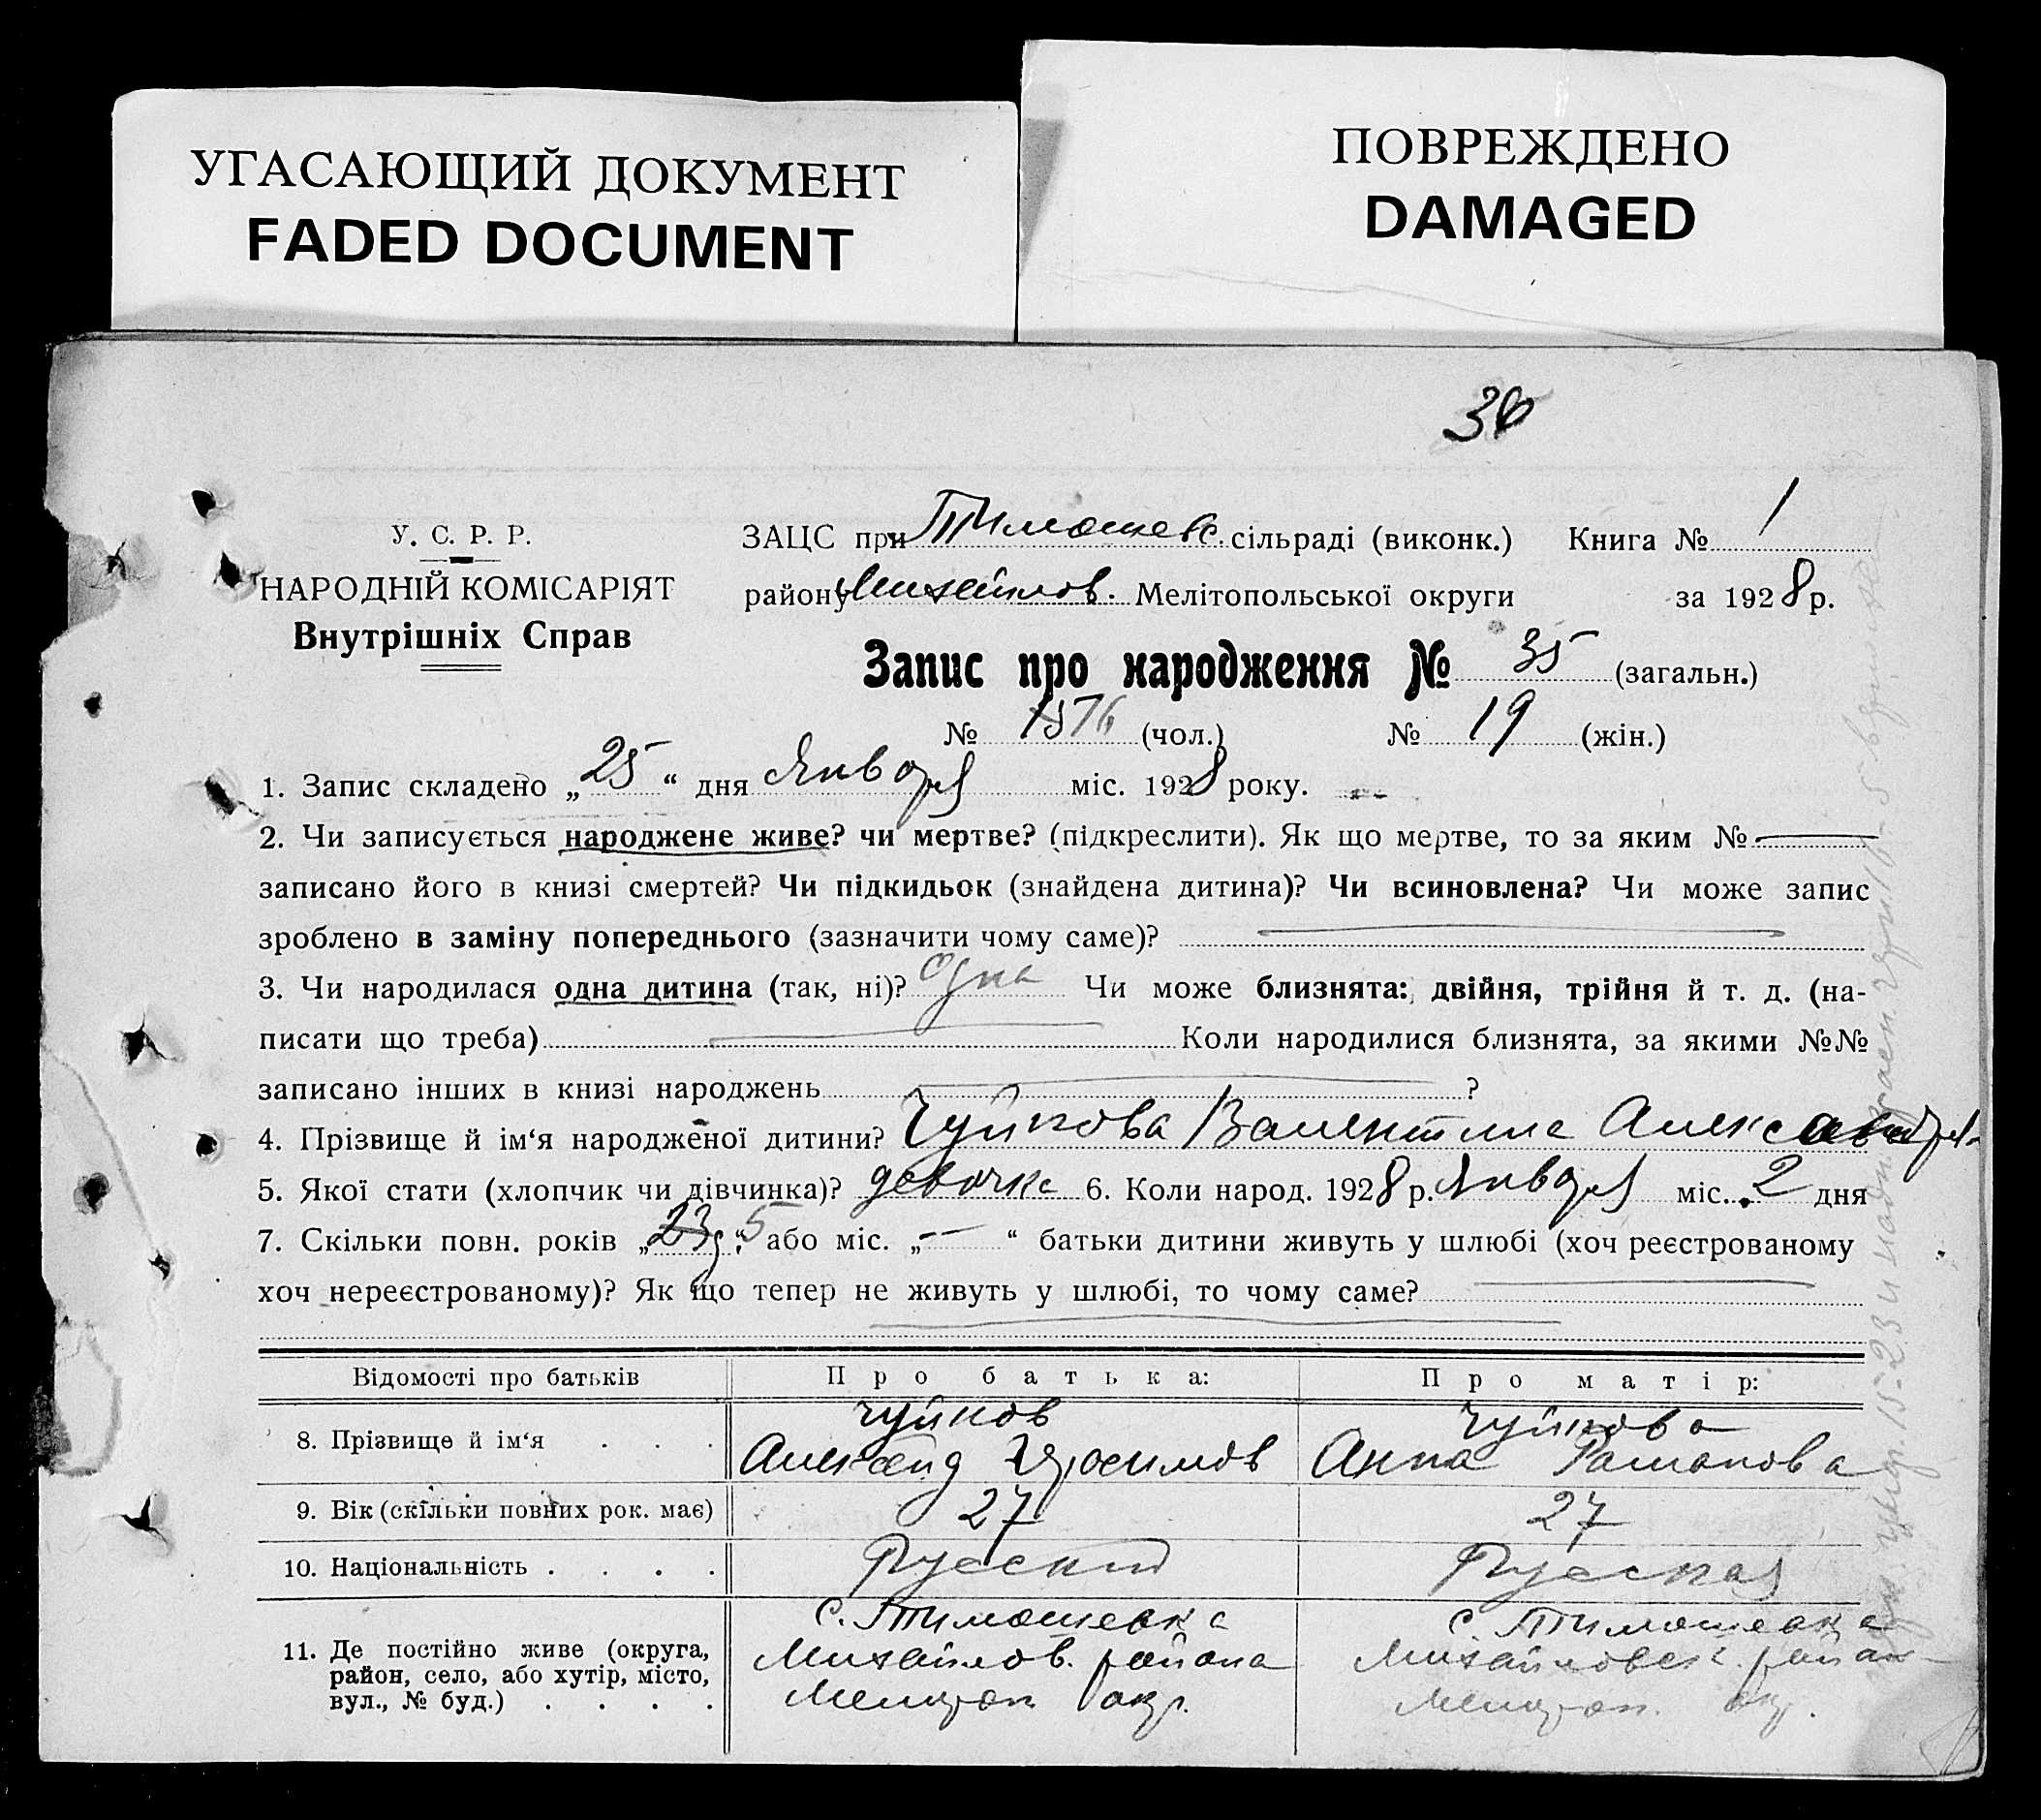 УГАСАЮЩИЙ ДОКУМЕНТ
FADED DOCUMENT
ПОВРЕЖДЕНО
DAMAGED
У. С. Р. Р.
НАРОДНІЙ КОМІСАРІЯТ
Внутрішніх Справ
ЗАЦС при Тимошевс. сільраді (виконк.) Книга № 1
району Михайлов. Мелітопольської округи за 1928 р.
Запис про народження № 35 (загальн.)
№ (чол.) № 19 (жін.)
1. Запис складено „25“ дня Января міс. 1928 року.
2. Чи записується народжене живе? чи мертве? (підкреслити). Як що мертве, то за яким №
записано його в книзі смертей? Чи підкидьок (знайдена дитина)? Чи всиновлена? Чи може запис
зроблено в заміну попереднього (зазначити чому саме)?
3. Чи народилася одна дитина (так, ні)? Одна Чи може близнята: двійня, трійня й т. д. (на-
писати що треба) Коли народилися близнята, за якими №№
записано інших в книзі народжень ?
4. Прізвище й ім‘я народженої дитини? Чуйкова Валентина
5. Якої стати (хлопчик чи дівчинка)? девочка 6. Коли народ. 1928 р. Января міс. 2 дня
7. Скільки повн. років „ “ 5 або міс. „—“ батьки дитини живуть у шлюбі (хоч реєстрованому
хоч нереєстрованому)? Як що тепер не живуть у шлюбі, то чому саме?
Відомості про батьків Про батька: Про матір:
8. Прізвище й ім‘я . . . Чуйков Чуйкова
Александ Герасимов Анна Романова
9. Вік (скільки повних рок. має) 27 27
10. Національність . . . . Русский Русская
11. Де постійно живе (округа, район, село, або хутір, місто, вул., № буд.) . . . .
с. Тимошевка с. Тимошевка
Михайлов. района Михайловск. район
Мелитоп. окр. Мелитоп. окр.